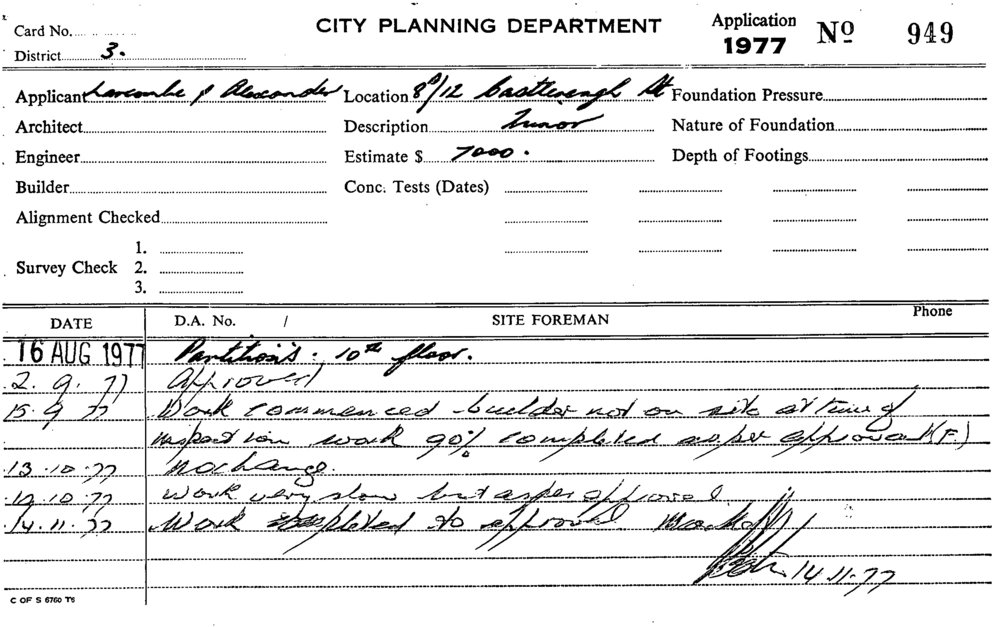 Card No.
CITY PLANNING DEPARTMENT
Application 1977 No 949
District 3.
Applicant Larcombe & Alexander Location 8/12 Castlereagh St Foundation Pressure
Architect Description Minor Nature of Foundation
Engineer Estimate $ 7000. Depth of Footings
Builder Conc. Tests (Dates)
Alignment Checked
1.
Survey Check 2.
3.
DATE D.A. No. / SITE FOREMAN Phone
16 AUG 1977 Partitions. 10th floor.
2.9.77 Approved
15.9.77 Work commenced builder not on site at time of
inspection work 90% completed as per approval (F.)
13.10.77 No change.
19.10.77 Work very slow but as per approval
14.11.77 Work completed to approval
14.11.77
C OF S 6760 TS